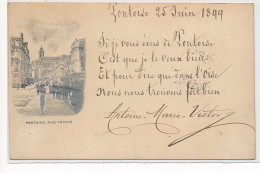 Pontoise 25 Juin 1899
Si je vous écris de Pontoise
C'est que je le veux bien
Et pour dire que dans l'Oise
Nous nous trouvons fort bien
Antoine-Marie-Victor
PONTOISE, RUE THIERS